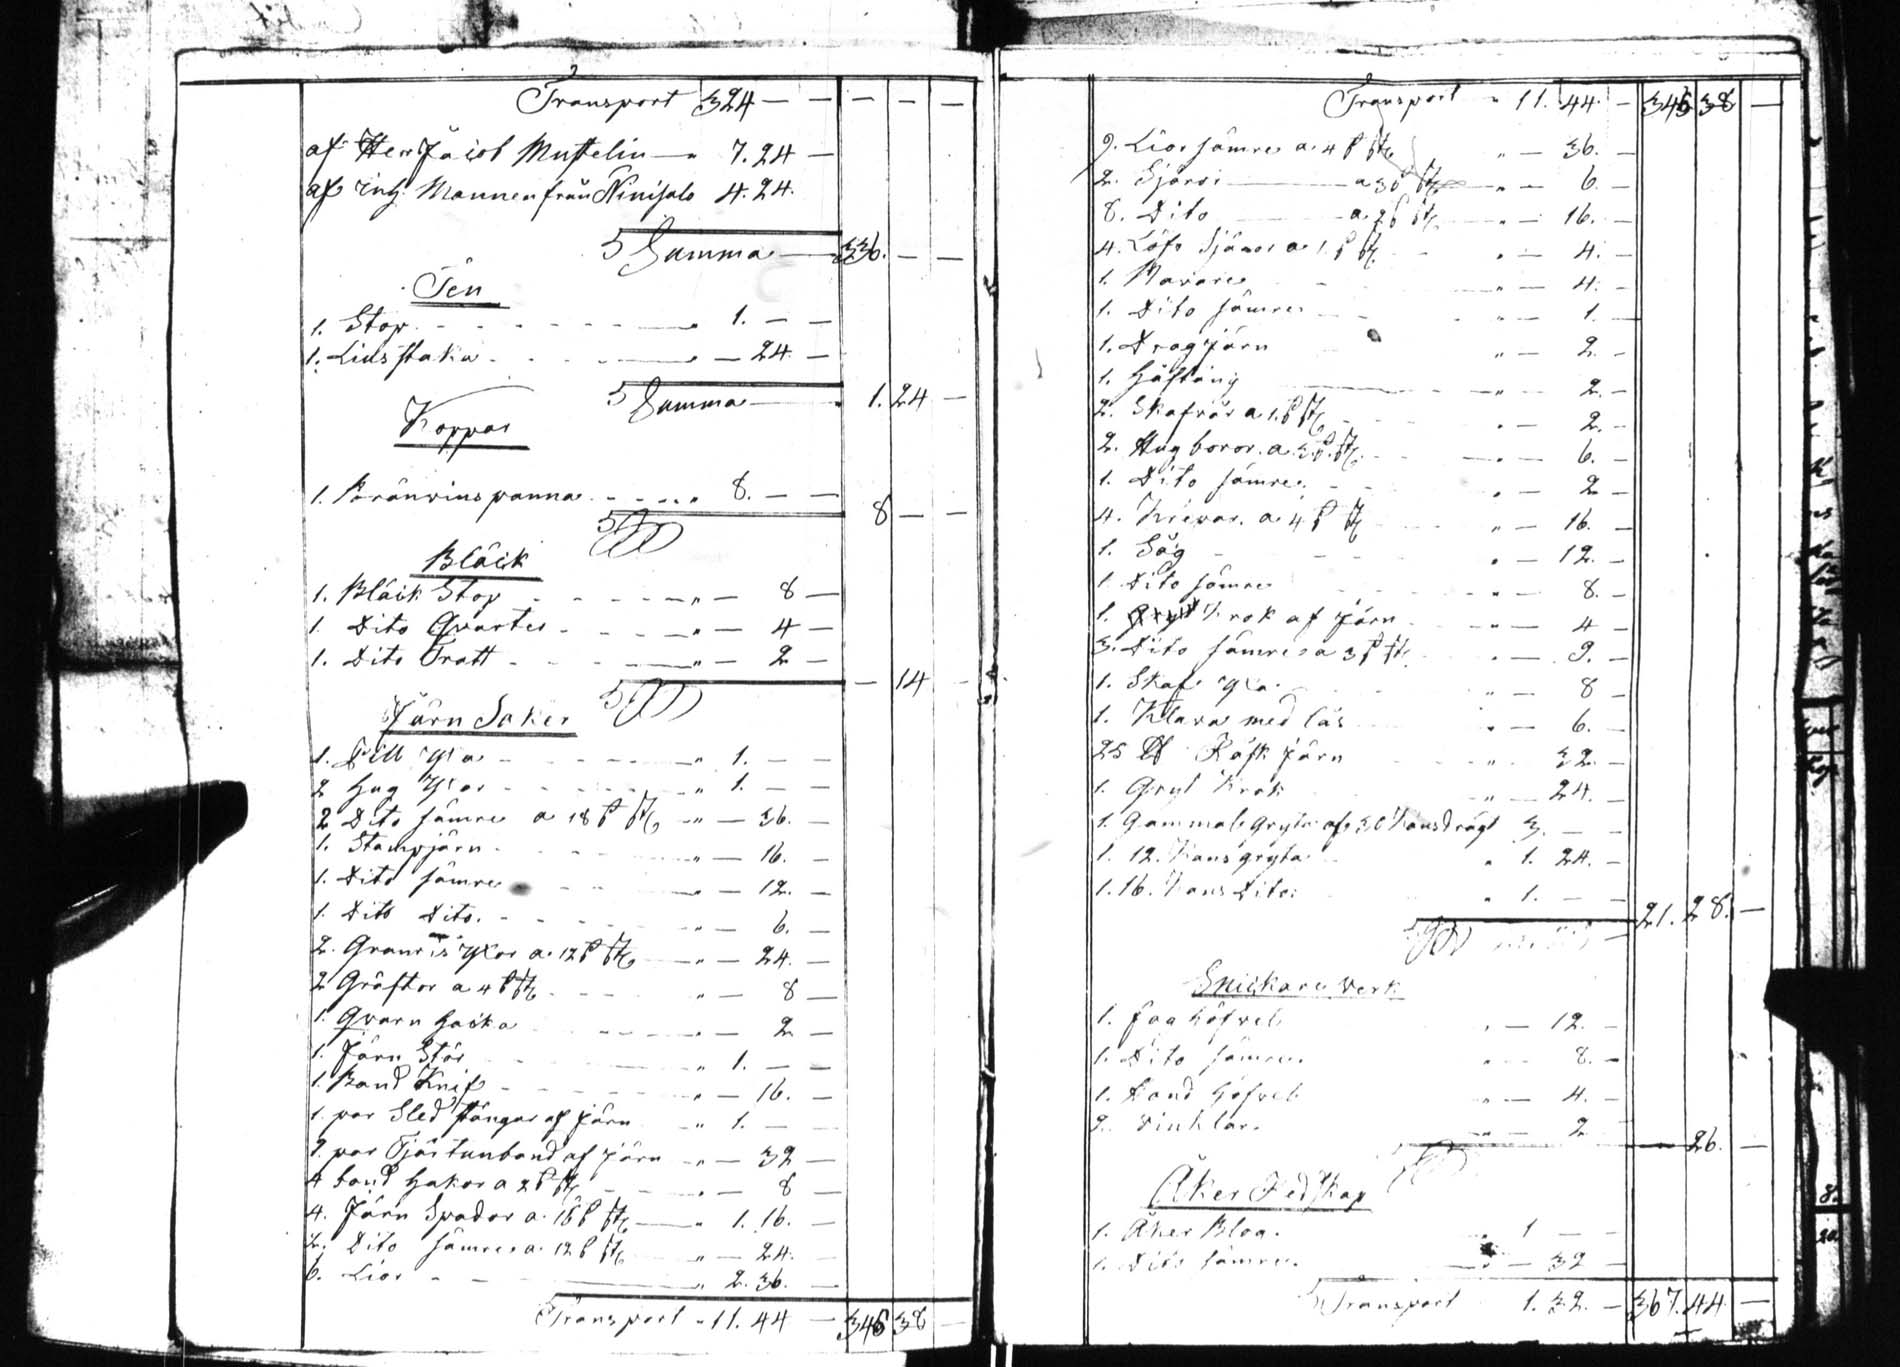 Transport 324 — — — — —
af Herr Jacob Mustelin — " 7. 24 —
af Inh. Mannen från Ninisalo 4. 24.
Summa — 336. — —
Ten
1. Stop — " 1. — —
1. Liusstaka — " — 24. —
Summa — " 1. 24 —
Koppar
1. Bränvins panna " 8. — —
8 — —
Bläck
1. Bläck Stop — " — 8 —
1. Dito Qvarter — " — 4 —
1. Dito Tratt — " — 2 —
— 14 —
Järn Saker
1. Fill Yxa — " 1. — —
2 Hug Yxor — " 1. — —
2 Dito sämre a 18 β St. — " — 36. —
1. Stampjärn — " — 16. —
1. Dito sämre — " — 12. —
1. Dito Dito. — " — 6. —
2. Granris Yxor a. 12 β St. — " — 24. —
2 Gräftor a 4 β St. — " — 8 —
1. Qvarn Hacka — " — 2 —
1. Järn Stör — " 1. — —
1. Band Knif — " — 16. —
1. par Sled stänger af Järn " 1. — —
1. par Tjärtunband af Järn — " — 32 —
4 band Hakor a 2 β St. — " — 8 —
4. Järn Spador a. 16 β St. — " 1. 16. —
2. Dito sämre a. 12 β St. — " — 24. —
6. Lior — " 2. 36. —
Transport " 11. 44 — 345 38 —
Transport " 11. 44. — 345 38 —
9. Lior sämre a. 4 β St. " — 36. —
2. Skäror — a 3 β St. " — 6. —
8. Dito — a. 2 β St. " — 16. —
4. Löfs Skäror a 1 β St. " — 4. —
1. Navare " — 4. —
1. Dito sämre " — 1. —
1. Dragjärn " — 2. —
1. Håftång " — 2. —
2. a 1. β St. " — 2. —
2. Hug boror. a. 3 β. St. " — 6. —
1. Dito sämre. " — 2 —
4. a 4 β St. " — 16. —
1. Såg " — 12. —
1. Dito sämre " — 8. —
1. Krok af Järn " — 4 —
3. Dito sämre a 3 β St. " — 9. —
1. Skaf Yxa " — 8 —
1. Klava med lås " — 6. —
25 ℔ Råsk Järn " — 32. —
1. Gryt Krok " — 24. —
1. Gammal Gryta af 30 Kans drägt 3. — —
1. 12. Kans gryta " 1. 24. —
1. 16. Kans Dito. " 1. — —
21. 28. —
Snickare verk
1. Höfvel " — 12. —
1. Dito sämre. " — 8. —
1. Band Höfvel " — 4. —
2. Vinklar. " — 2 —
— 26. —
Åker Redskap
1. Åker Plog. " 1 — —
1. Dito sämre. " — 32 —
Transport " 1. 32. — 367. 44 —